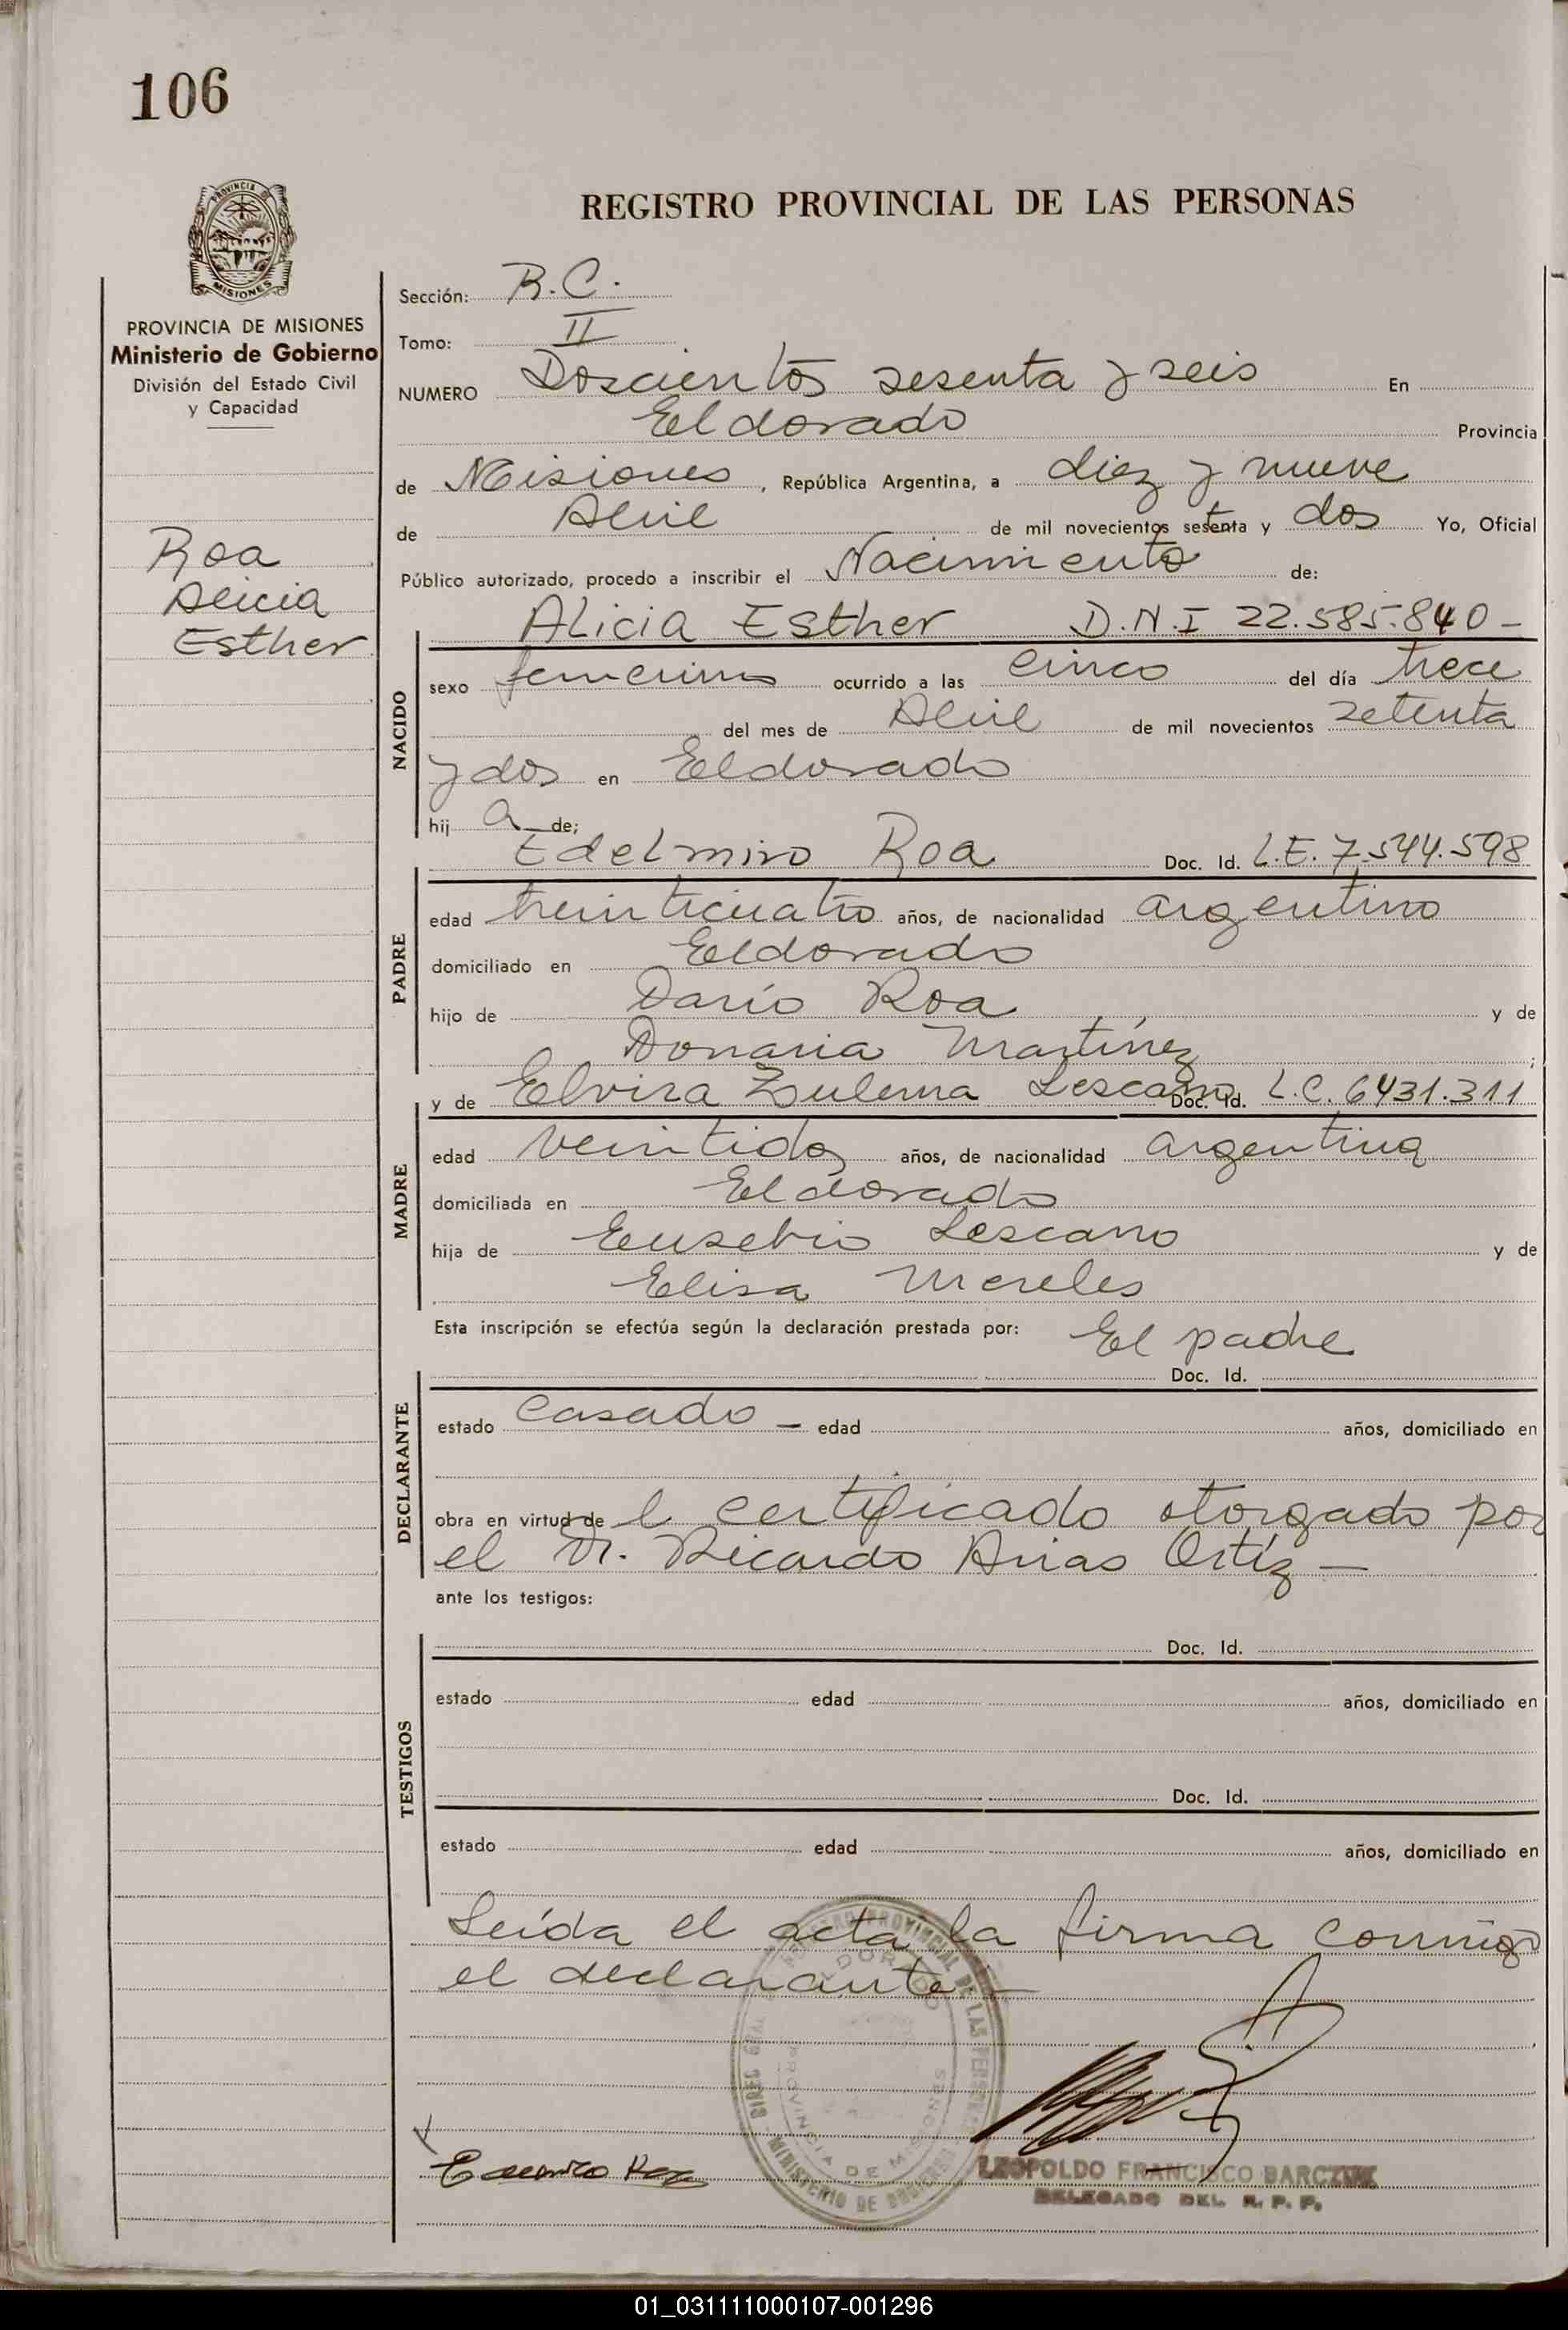 106
PROVINCIA
MISIONES
REGISTRO PROVINCIAL DE LAS PERSONAS
PROVINCIA DE MISIONES
Ministerio de Gobierno
División del Estado Civil
y Capacidad
Roa
Alicia
Esther
Sección: R.C.
Tomo: II
NUMERO Doscientos sesenta y seis En
Eldorado Provincia
de Misiones, República Argentina, a diez y nueve
de Abril de mil novecientos setenta y dos Yo, Oficial
Público autorizado, procedo a inscribir el Nacimiento de:
Alicia Esther D.N.I 22.585.840-
NACIDO
sexo femenino ocurrido a las cinco del día trece
del mes de Abril de mil novecientos setenta
y dos en Eldorado
hij a de;
Edelmiro Roa Doc. Id. L.E. 7.544.598
PADRE
edad treinticuatro años, de nacionalidad argentino
domiciliado en Eldorado
hijo de Darío Roa y de
Donaria Martínez;
y de Elvira Zulema Lescano Doc. Id. L.C. 6431.311
MADRE
edad veintidos años, de nacionalidad argentina
domiciliada en Eldorado
hija de Eusebio Lescano y de
Elisa Mereles
Esta inscripción se efectúa según la declaración prestada por: El padre
Doc. Id.
DECLARANTE
estado Casado - edad años, domiciliado en
obra en virtud de l certificado otorgado por
el Dr. Ricardo Arias Ortíz -
ante los testigos:
Doc. Id.
TESTIGOS
estado edad años, domiciliado en
Doc. Id.
estado edad años, domiciliado en
Leída el acta la firma conmigo
el declarante -
REGISTRO PROVINCIAL DE LAS PERSONAS
ELDORADO
PROVINCIA DE MISIONES
MINISTERIO DE GOBIERNO
Roa
LEOPOLDO FRANCISCO
DELEGADO DEL R. P. P.
01_031111000107-001296